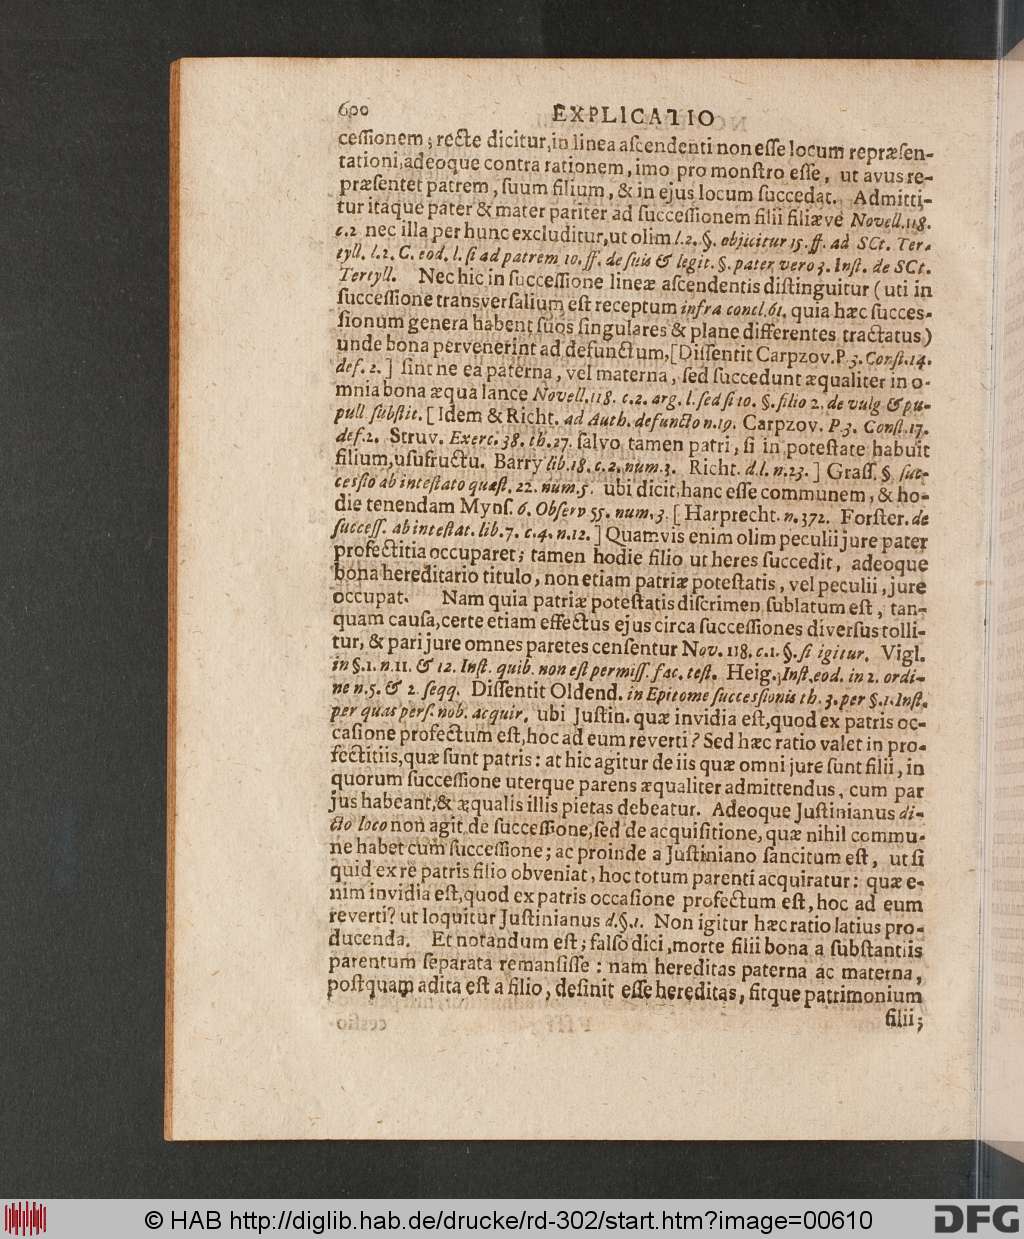 600 EXPLICATIO
ceſſionem; recte dicitur, in linea aſcendenti non eſſe locum repræſen-
tationi, adeoque contra rationem, imo pro monſtro eſſe, ut avus re-
præſentet patrem, ſuum filium, & in ejus locum ſuccedat. Admitti-
tur itaque pater & mater pariter ad ſucceſſionem filii filiæve Novell. 118.
c. 2 nec illa per hunc excluditur, ut olim l. 2. §. objicitur 15. ff. ad SCt. Ter-
tyll. l. 2. C. eod. l. ſi ad patrem 10. ff. de ſuis & legit. §. pater vero 3. Inſt. de SCt.
Tertyll. Nec hic in ſucceſſione lineæ aſcendentis diſtinguitur (uti in
ſucceſſione transverſalium eſt receptum infra concl. 61. quia hæc ſucceſ-
ſionum genera habent ſuos ſingulares & plane differentes tractatus)
unde bona pervenerint ad defunctum, [Diſſentit Carpzov. P. 3. Conſt. 14.
def. 2.] ſint ne ea paterna, vel materna, ſed ſuccedunt æqualiter in o-
mnia bona æqua lance Novell. 118. c. 2. arg. l. ſed ſi 10. §. filio 2. de vulg & pu-
pull ſubſtit. [Idem & Richt. ad Auth. defuncto n. 19. Carpzov. P. 3. Conſt. 17.
def. 2. Struv. Exerc. 38. th. 27. ſalvo tamen patri, ſi in poteſtate habuit
filium, uſufructu. Barry lib. 18. c. 2. num. 3. Richt. d. l. n. 23.] Graſſ. §. ſuc-
ceſſio ab inteſtato quæſt. 22. num. 5. ubi dicit, hanc eſſe communem, & ho-
die tenendam Mynſ. 6. Obſerv 55. num. 3. [Harprecht. n. 372. Forſter. de
ſucceſſ. ab inteſtat. lib. 7. c. 4. n. 12.] Quamvis enim olim peculii jure pater
profectitia occuparet; tamen hodie filio ut heres ſuccedit, adeoque
bona hereditario titulo, non etiam patriæ poteſtatis, vel peculii, jure
occupat. Nam quia patriæ poteſtatis diſcrimen ſublatum eſt, tan-
quam cauſa, certe etiam effectus ejus circa ſucceſſiones diverſus tolli-
tur, & pari jure omnes paretes cenſentur Nov. 118. c. 1. §. ſi igitur. Vigl.
in §. 1. n. 11. & 12. Inſt. quib. non eſt permiſſ. fac. teſt. Heig. Inſt. eod. in 2. ordi-
ne n. 5. & 2. ſeqq. Diſſentit Oldend. in Epitome ſucceſſionis th. 3. per §. 1. Inſt.
per quas perſ. nob. acquir. ubi Juſtin. quæ invidia eſt, quod ex patris oc-
caſione profectum eſt, hoc ad eum reverti? Sed hæc ratio valet in pro-
fectitiis, quæ ſunt patris: at hic agitur de iis quæ omni jure ſunt filii, in
quorum ſucceſſione uterque parens æqualiter admittendus, cum par
jus habeant, & æqualis illis pietas debeatur. Adeoque Juſtinianus di-
cto loco non agit de ſucceſſione, ſed de acquiſitione, quæ nihil commu-
ne habet cum ſucceſſione; ac proinde a Juſtiniano ſancitum eſt, ut ſi
quid ex re patris filio obveniat, hoc totum parenti acquiratur: quæ e-
nim invidia eſt, quod ex patris occaſione profectum eſt, hoc ad eum
reverti? ut loquitur Juſtinianus d. §. 1. Non igitur hæc ratio latius pro-
ducenda. Et notandum eſt; falſo dici, morte filii bona a ſubſtantiis
parentum ſeparata remanſiſſe: nam hereditas paterna ac materna,
poſtquam adita eſt a filio, deſinit eſſe hereditas, fitque patrimonium
filii;
© HAB http://diglib.hab.de/drucke/rd-302/start.htm?image=00610
DFG